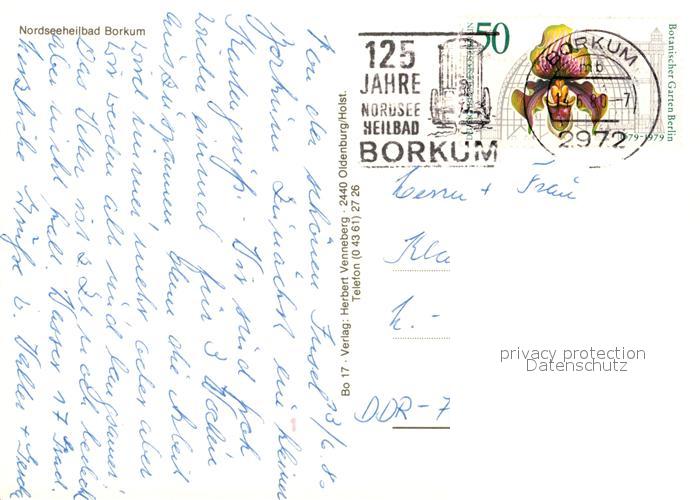 Nordseeheilbad Borkum
Von der schönen Insel 13/6. 80
Borkum zunächst ein kleiner
Kartengruß. Wir sind froh
wieder einmal für 3 Wochen
auszuspannen, denn die Arbeit
wird immer mehr oder aber
wir werden alt und langsamer.
Das Wetter ist z. Zt. noch bedeckt
aber nicht kalt. Wasser 17 Grad.
Herzliche Grüße v. Walter +
Bo 17 · Verlag: Herbert Venneberg · 2440 Oldenburg/Holst.
Telefon (0 43 61) 27 26
125
JAHRE
NORDSEE
HEILBAD
BORKUM
50
BORKUM
2972
Botanischer Garten Berlin
1679-1979
Herrn + Frau
Kla
h. -
DDR-7
privacy protection
Datenschutz